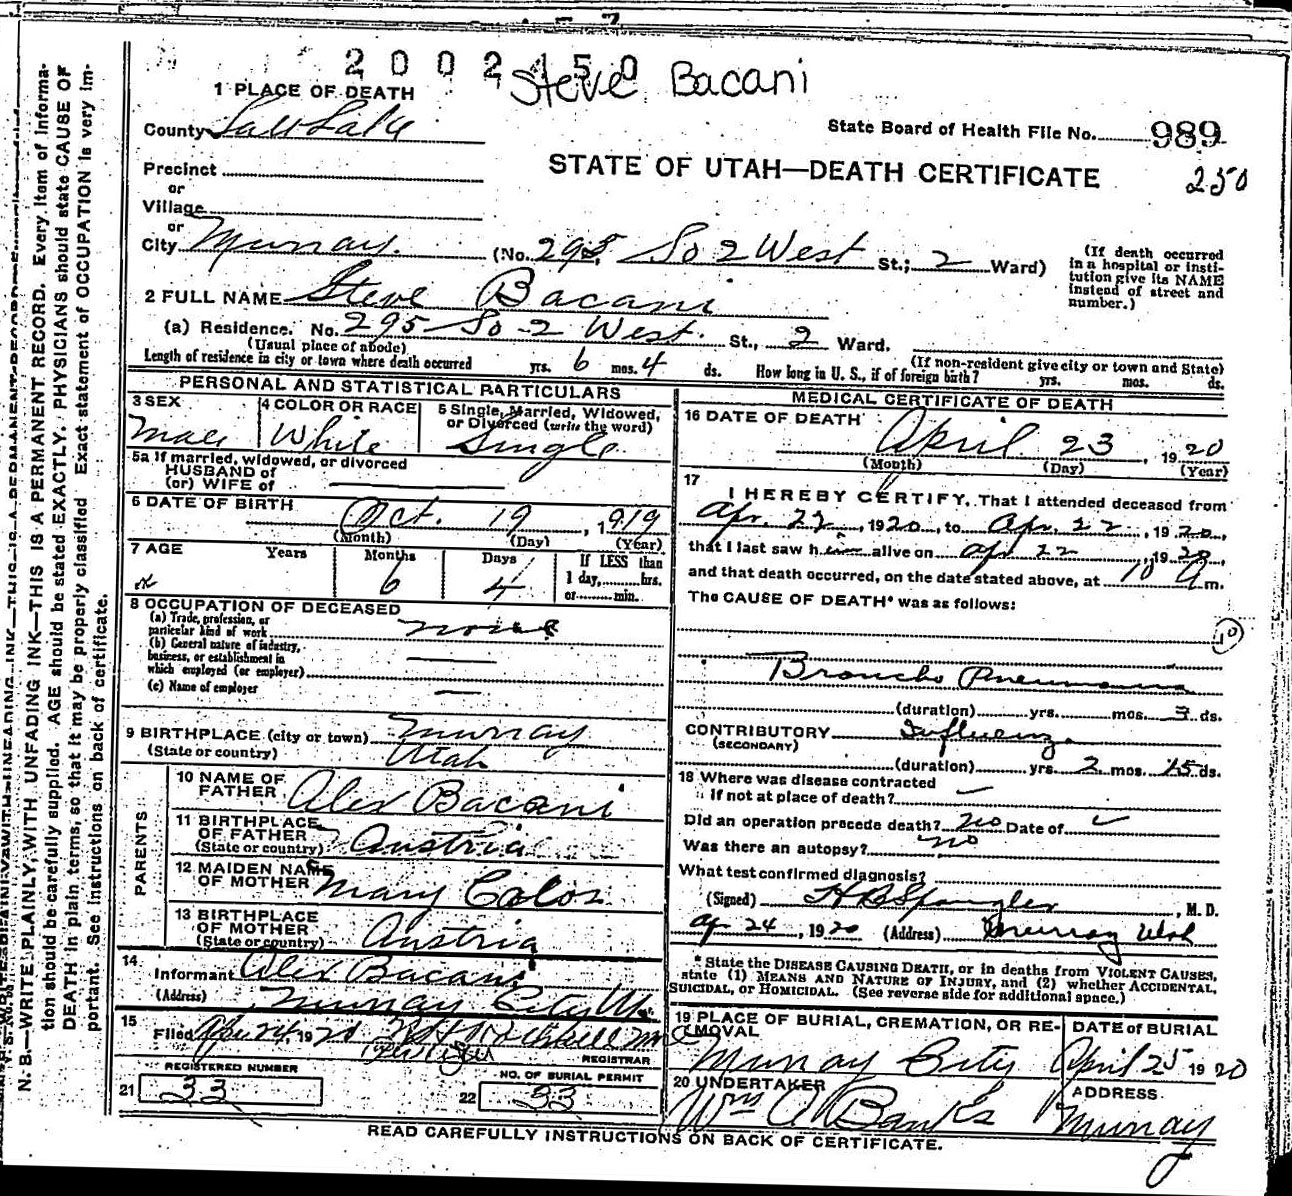 2002450
Steve Bacani
1 PLACE OF DEATH
County Salt Lake
State Board of Health File No. 989
STATE OF UTAH—DEATH CERTIFICATE
250
Precinct
or
Village
or
City Murray. (No. 295, So 2 West St.; 2 Ward)
(If death occurred in a hospital or institution give its NAME instead of street and number.)
2 FULL NAME Steve Bacani
(a) Residence. No. 295 So 2 West. St., 2 Ward.
(Usual place of abode)
(If non-resident give city or town and State)
Length of residence in city or town where death occurred yrs. 6 mos. 4 ds. How long in U. S., if of foreign birth? yrs. mos. ds.
PERSONAL AND STATISTICAL PARTICULARS
3 SEX
Male
4 COLOR OR RACE
White
5 Single, Married, Widowed,
or Divorced (write the word)
Single
5a If married, widowed, or divorced
HUSBAND of
(or) WIFE of
6 DATE OF BIRTH
Oct. 19, 1919
(Month) (Day) (Year)
7 AGE Years Months Days If LESS than
6 4 1 day,........hrs.
or.........min.
8 OCCUPATION OF DECEASED
(a) Trade, profession, or
particular kind of work none
(b) General nature of industry,
business, or establishment in
which employed (or employer)
(c) Name of employer
9 BIRTHPLACE (city or town) Murray
(State or country) Utah
PARENTS
10 NAME OF
FATHER Alex Bacani
11 BIRTHPLACE
OF FATHER
(State or country) Austria
12 MAIDEN NAME
OF MOTHER Mary Colos
13 BIRTHPLACE
OF MOTHER
(State or country) Austria
14
Informant Alex Bacani
(Address) Murray City
15
Filed Apr 24, 1920
REGISTRAR
REGISTERED NUMBER
21 33
NO. OF BURIAL PERMIT
22 33
MEDICAL CERTIFICATE OF DEATH
16 DATE OF DEATH
April 23, 1920
(Month) (Day) (Year)
17
I HEREBY CERTIFY, That I attended deceased from
Apr. 22, 1920, to Apr. 22, 1920,
that I last saw him alive on Apr 22, 1920,
and that death occurred, on the date stated above, at 10 A m.
The CAUSE OF DEATH* was as follows:
10
Broncho Pneumonia
(duration) yrs. mos. 3 ds.
CONTRIBUTORY Influenza
(SECONDARY)
(duration) yrs. 2 mos. 15 ds.
18 Where was disease contracted
if not at place of death?
Did an operation precede death? No Date of
Was there an autopsy? No
What test confirmed diagnosis?
(Signed) H B Spangler, M. D.
Ap 24, 1920 (Address) Murray Utah
* State the DISEASE CAUSING DEATH, or in deaths from VIOLENT CAUSES,
state (1) MEANS AND NATURE OF INJURY, and (2) whether ACCIDENTAL,
SUICIDAL, or HOMICIDAL. (See reverse side for additional space.)
19 PLACE OF BURIAL, CREMATION, OR REMOVAL
Murray City
DATE OF BURIAL
April 25 1920
20 UNDERTAKER
Wm A Banks
ADDRESS
Murray
READ CAREFULLY INSTRUCTIONS ON BACK OF CERTIFICATE.
N. B.—WRITE PLAINLY, WITH UNFADING INK—THIS IS A PERMANENT RECORD. Every item of informa-
tion should be carefully supplied. AGE should be stated EXACTLY. PHYSICIANS should state CAUSE OF
DEATH in plain terms, so that it may be properly classified. Exact statement of OCCUPATION is very im-
portant. See instructions on back of certificate.